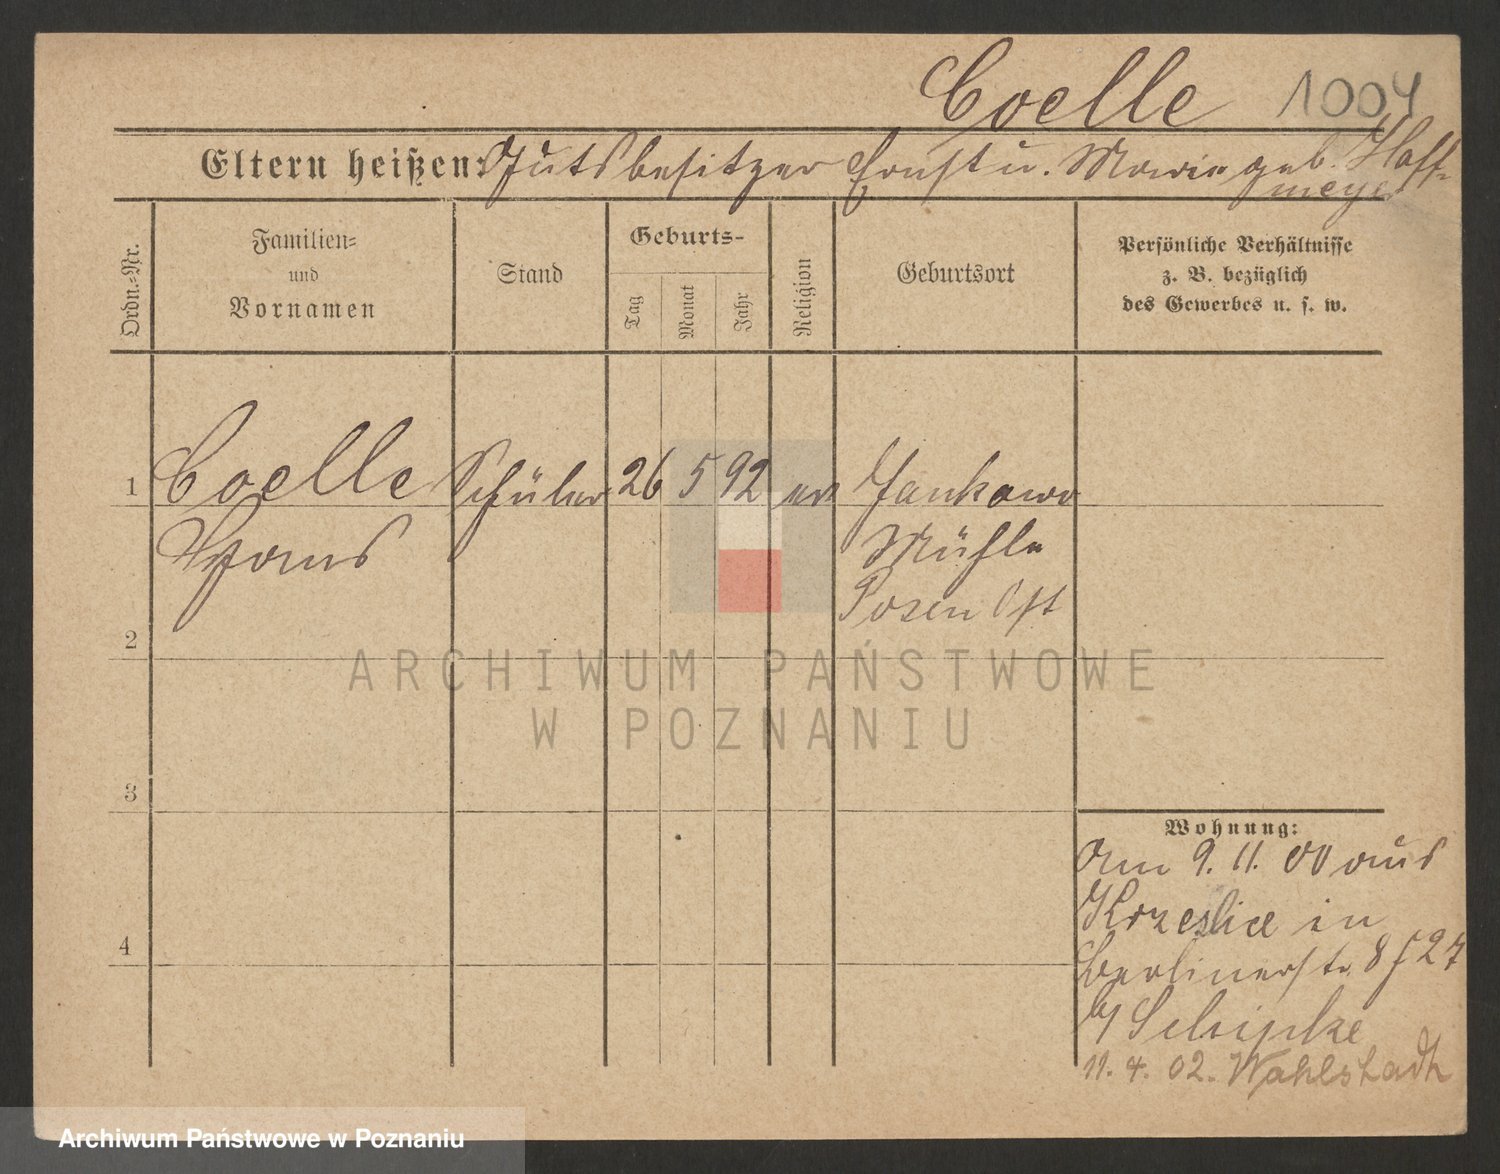 Coelle 1004
Eltern heißen: Gutsbesitzer Ernst u. Marie geb. Hoff-
meyer
Ordn.-Nr.
Familien-
und
Vornamen
Stand
Geburts-
Tag
Monat
Jahr
Religion
Geburtsort
Persönliche Verhältnisse
z. B. bezüglich
des Gewerbes u. s. w.
1 Coelle Schüler 26 5 92 ev Jankowo
Hans Mühle
Posen Ost
2
3
4
Wohnung:
Am 9. 11. 00 aus
Krzeslice in
Berlinerstr 8 f 27
b/ Schipke
11. 4. 02. Wahlstadt
ARCHIWUM PAŃSTWOWE
W POZNANIU
Archiwum Państwowe w Poznaniu